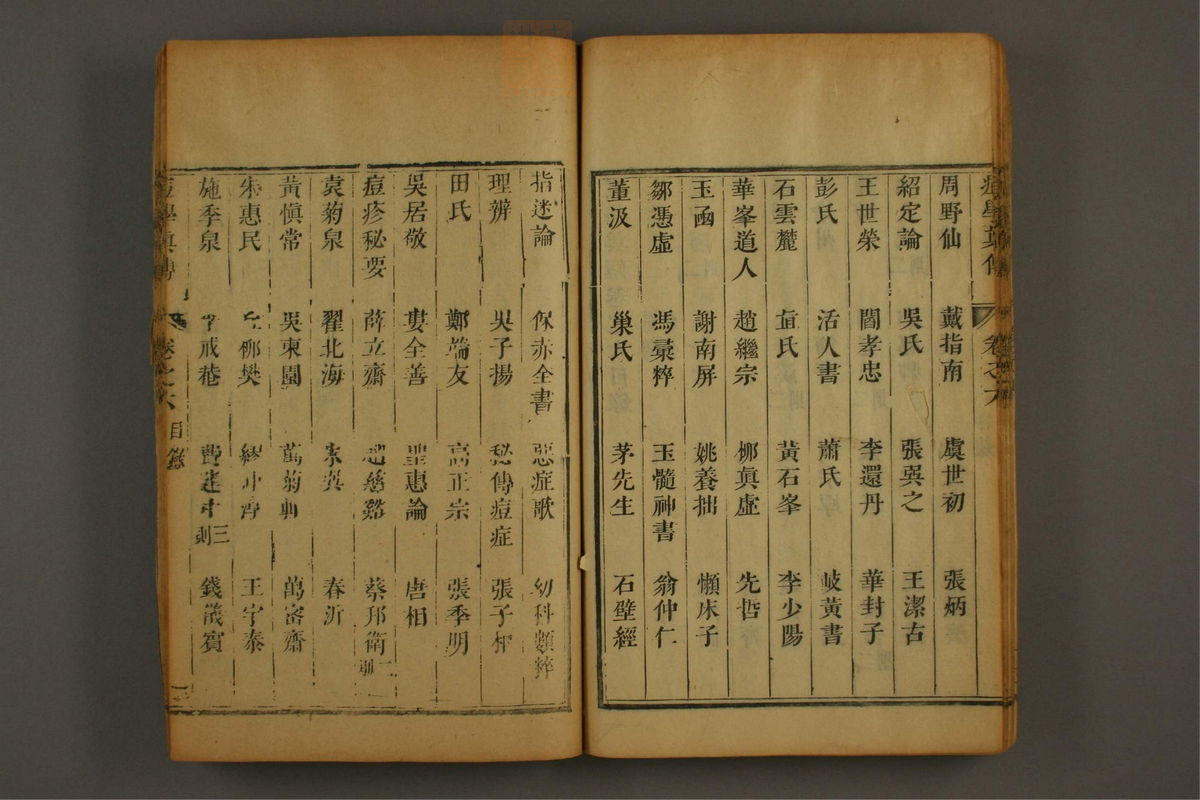 痘學真傳 卷之六
周野仙 戴指南 虞世初 張炳
紹定論 吳氏 張奐之 王潔古
王世榮 閻孝忠 李還丹 華封子
彭氏 活人書 蕭氏 岐黃書
石雲麓 直氏 黃石峯 李少陽
華峯道人 趙繼宗 柳眞虛 先哲
玉函 謝南屏 姚養拙 懶床子
鄒憑虛 馮彙粹 玉髓神書 翁仲仁
董汲 巢氏 茅先生 石壁經
指迷論 保赤全書 惡症歌 幼科類粹
理辨 吳子揚 秘傳痘症 張子和
田氏 鄭端友 高正宗 張季明
吳居敬 婁全善 聖惠論 唐相
痘疹秘要 薛立齋 趙慈谿 蔡邦衛二則
袁菊泉 翟北海 春沂
黃愼常 吳東園 萬菊軒 萬密齋
朱惠民 柳樊 繆仲淳 王宇泰
施季泉 戒菴 費建中三則 錢儀賓
痘學眞傳 卷之六 目錄 二